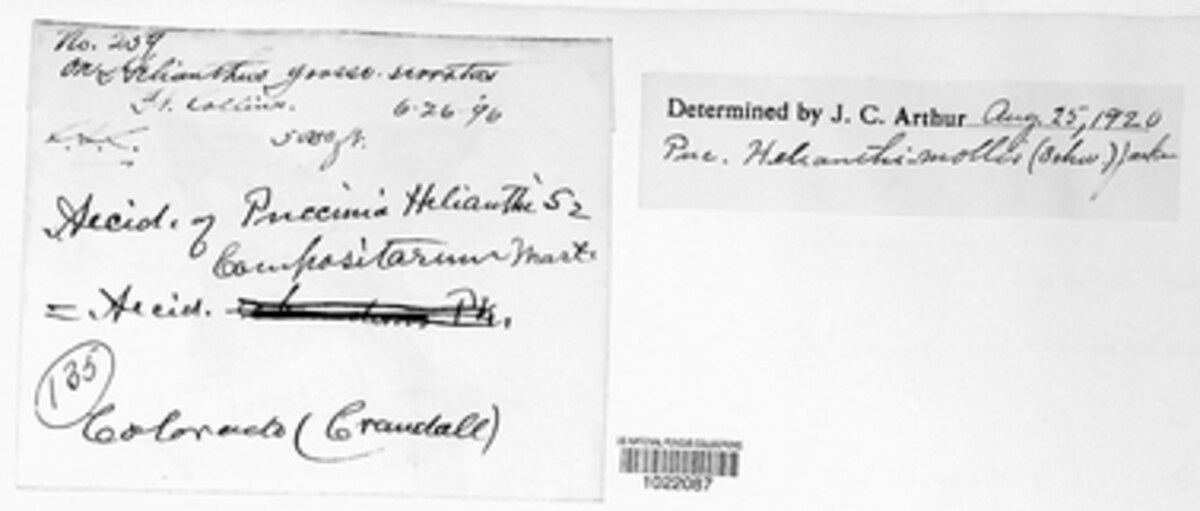 No. 239
on Helianthus grosse-serratus
Ft. Collins. 6-26-96
5000 ft.
Aecid. of Puccinia Helianthi Sz
Compositarum Mart.
= Aecid. Pk.
135
Colorado (Crandall)
Determined by J. C. Arthur Aug. 25, 1920
Puc. Helianthi-mollis (Schw.) Jacks
US NATIONAL FUNGUS COLLECTIONS
1022087